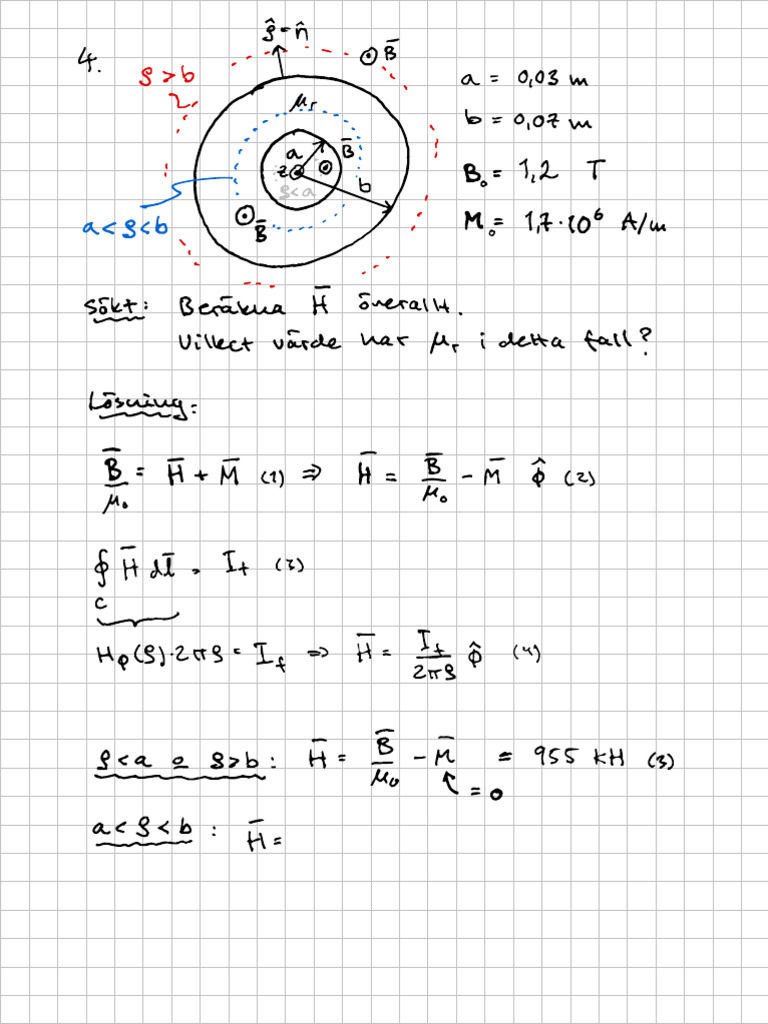 4.
ρ̂ = n̂
B̄
ρ > b
μr
a
B̄
z
ρ<a
b
B̄
a < ρ < b
a = 0,03 m
b = 0,07 m
B₀ = 1,2 T
M₀ = 1,7·10⁶ A/m
Sökt: Beräkna H̄ överallt.
Villect värde har μr i detta fall?
Lösning:
B̄/μ₀ = H̄ + M̄ (1) ⇒ H̄ = B̄/μ₀ - M̄ φ̂ (2)
∮ H̄ dl̄ = If (3)
c
Hφ(ρ)·2πρ = If ⇒ H̄ = If/2πρ φ̂ (4)
ρ<a o ρ>b: H̄ = B̄/μ₀ - M̄ = 955 kH (3)
= 0
a < ρ < b: H̄ =